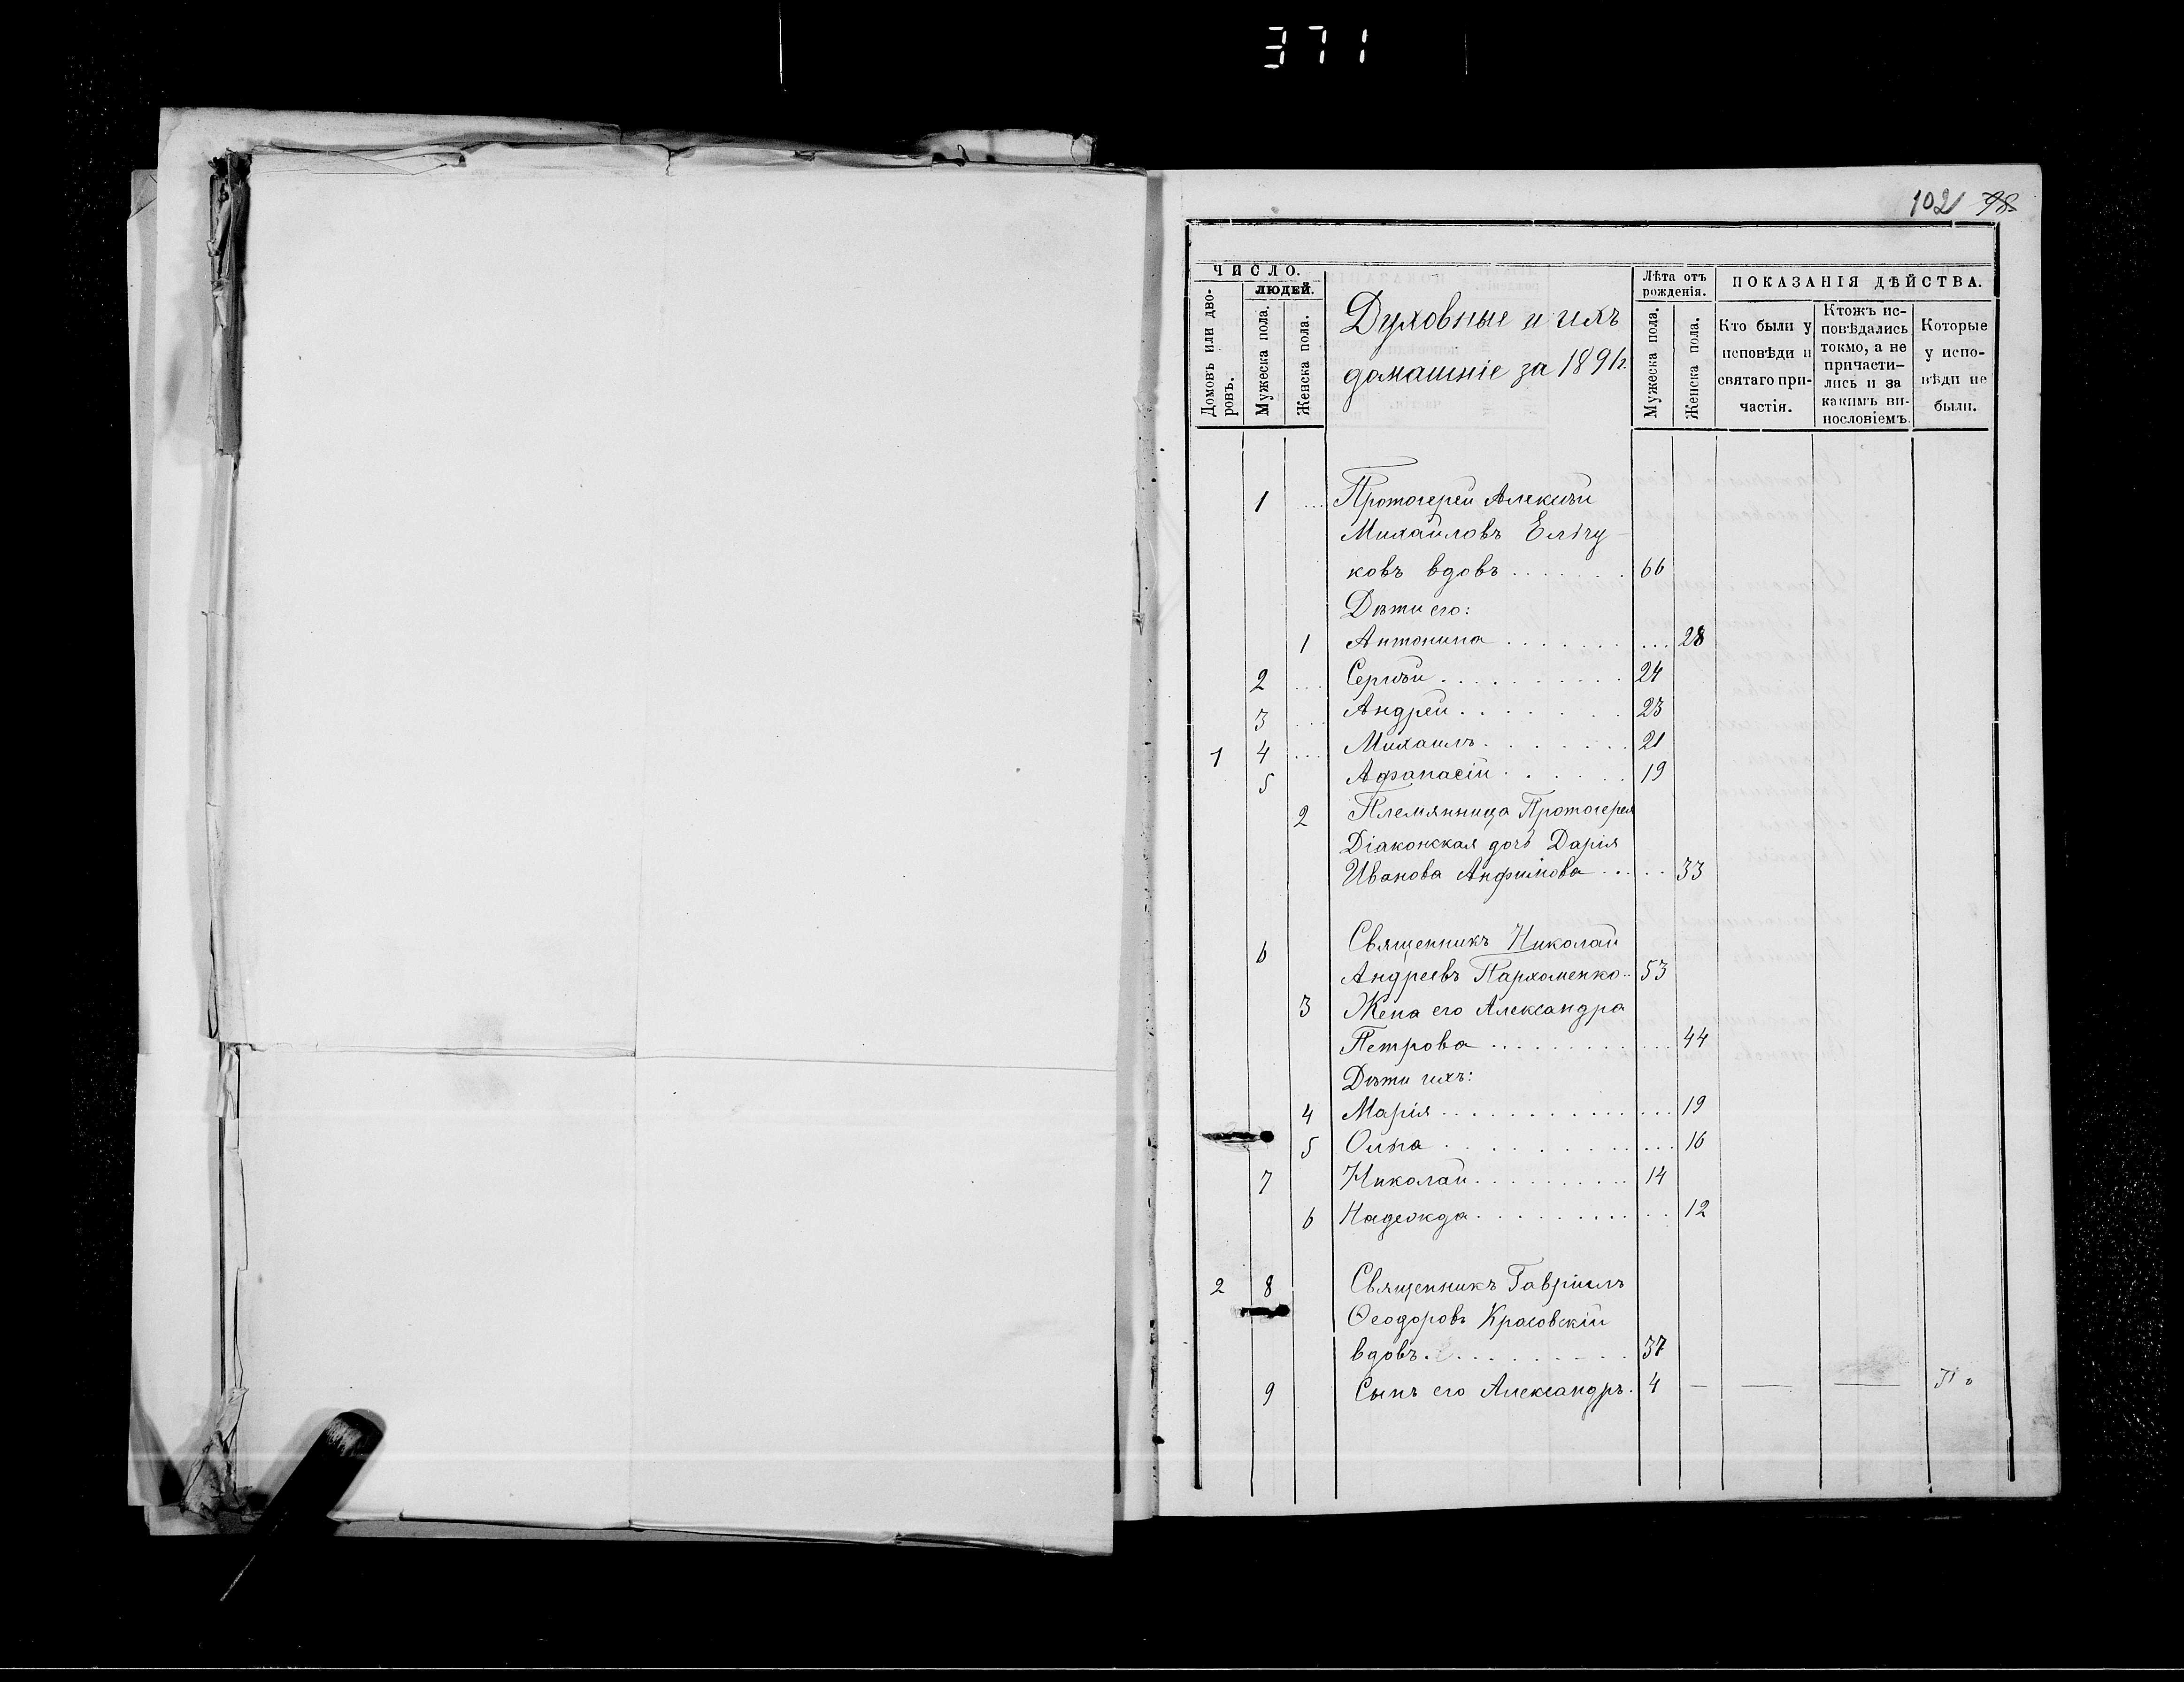 371
102 98
ЧИСЛО.
ЛЮДЕЙ.
Домовъ или дво-
ровъ.
Мужеска пола.
Женска пола.
Духовные и ихъ
домашніе за 1891г.
Лѣта отъ
рожденія.
Мужеска пола.
Женска пола.
ПОКАЗАНІЯ ДѢЙСТВА.
Кто были у
исповѣди и
святаго при-
частія.
Ктожъ ис-
повѣдались
токмо, а не
причасти-
лись и за
какимъ ви-
нословіемъ.
Которые
у испо-
вѣди не
были.
1 ... Протоіерей Алексѣй
Михайловъ
ковъ вдовъ ....... 66
Дѣти его:
1 Антонина ....... ... 28
2 ... Сергѣй .......... 24
3 ... Андрей ....... 23
1 4 ... Михаилъ ........ 21
5 Аѳанасій ...... 19
2 Племянница Протоіерея
Діаконская дочь Дарія
Иванова Анфимова ..... 33
6 Священникъ Николай
Андреевъ Пархоменко .. 53
3 Жена его Александра
Петрова ............ 44
Дѣти ихъ:
4 Марія ............... 19
5 ............. 16
7 Николай .......... 14
6 Надежда ........... 12
2 8 Священникъ Гавріилъ
Ѳеодоровъ Красовскій
вдовъ .......... 37
9 Сынъ его Александръ . 4 — — —